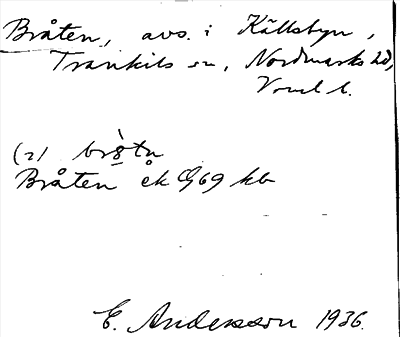 Bråten, avs. i Källsbyn,
Trankils sn, Nordmarks hd,
Vrml l.
(2) brǫ̀tn
Bråten ek Q69 kb
E. Andersson 1936.